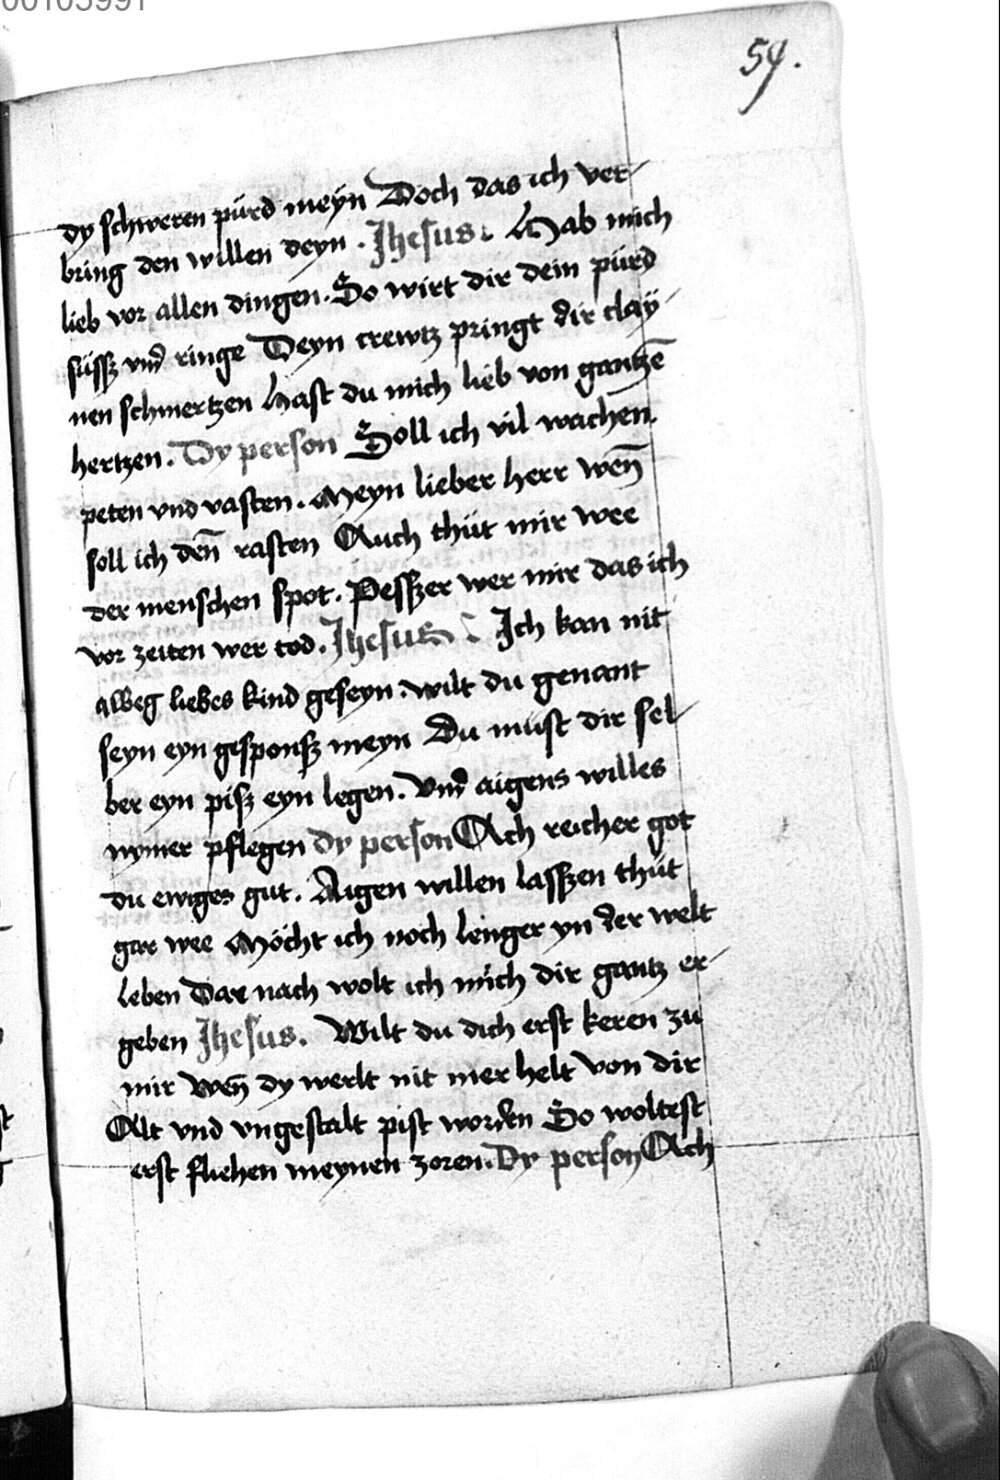 00103991
59.
dy schweren pürd meÿn Doch das ich ver-
bring den willen deyn . Jhesus . Hab mich
lieb vor allen dingen . So wirt dir dein pürd
süssz vnd ringe Deyn crewtz pringt dir claÿ-
nen schmertzen Hast du mich lieb von gantzē
hertzen . Dy person Soll ich vil wachen .
peten vnd vasten . Meyn lieber herr wen̄
soll ich den̄ rasten Auch thüt mir wee
der menschen spot . Pesszer wer mir das ich
vor zeiten wer tod . Jhesus : Ich kan nit
alweg liebes kind geseyn . wilt du genant
seyn eyn gesponsz meyn Du müst dir sel-
ber eyn pisz eyn legen . Vnd aigens willes
nymer pflegen Dy person Ach reicher got
du ewiges gut . Aigen willen lasszen thüt
gar wee Möcht ich noch lenger yn der welt
leben Dar nach wolt ich mich dir gantz er-
geben Jhesus . Wilt du dich erst keren zu
mir Wen̄ dy werlt nit mer helt von dir
Alt vnd vngestalt pist worden So woltest
erst fliehen meynen zoren . Dy person Ach